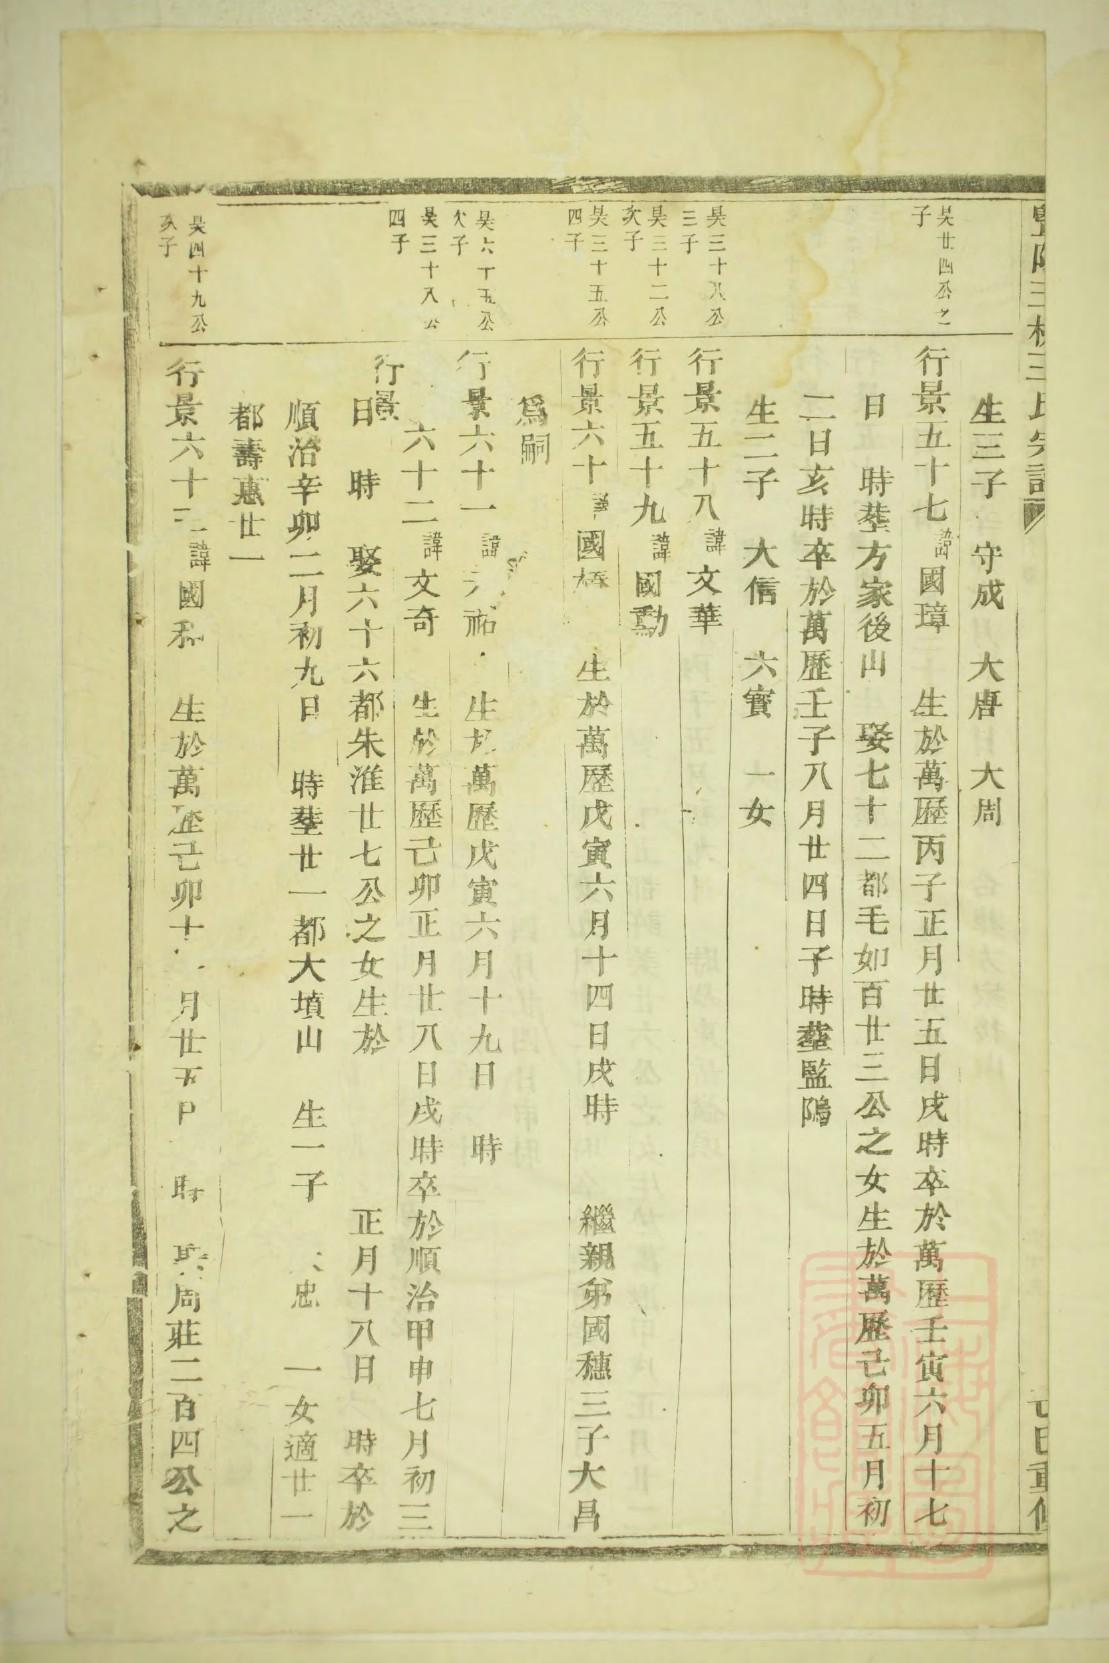 生三子 守成 大唐 大周
昊廿四公之
子
行景五十七諱國璋 生於萬歷丙子正月廿五日戌時卒於萬歷壬寅六月十七
日 時塟方家後山 娶七十二都毛如百廿三公之女生於萬歷己卯五月初
二日亥時卒於萬歷壬子八月廿四日子時塟監隝
生二子 大信 六實 一女
昊三十八公
三子
行景五十八諱文華
昊三十二公
次子
行景五十九諱國勳
昊三十五公
四子
行景六十諱國 生於萬歷戊寅六月十四日戌時 繼親弟國穗三子大昌
爲嗣
昊六十五公
次子
行景六十一諱 祐 生於萬歷戊寅六月十九日 時
昊三十八公
四子
行景六十二諱文奇 生於萬歷己卯正月廿八日戌時卒於順治甲申七月初三
日 時 娶六十六都朱淮廿七公之女生於 正月十八日 時卒於
順治辛卯二月初九日 時塟廿一都大墳山 生一子 忠 一女適廿一
都壽惠廿一
昊四十九公
次子
行景六十三諱國 生於萬歷己卯十 月廿五日 時 娶周莊二百四公之